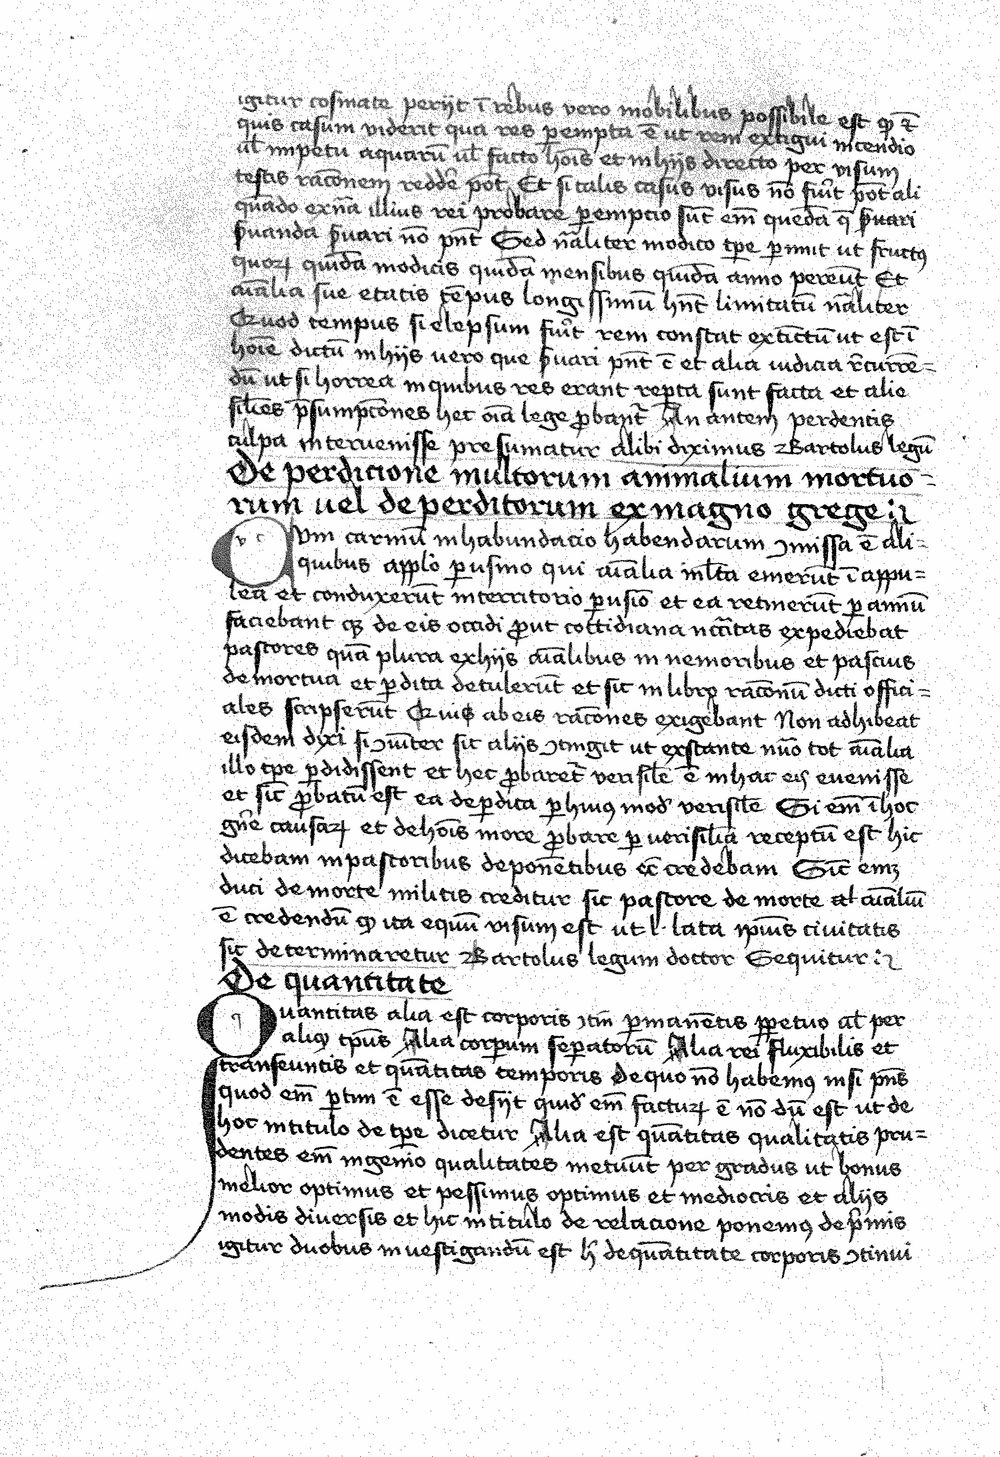 igitur cosmate perijt ī rebus vero mobilibus possibile est qͦ
quis casum viderit qua res pempta ē ut rem extigui incendio
ul̄ impetu aquarū ul̄ facto hoīs et in hijs directo per visum
testis racōnem redde᷑ pot̄ Et si talis casus visus nō fuit pot̄ ali
quādo exnā illius rei probare pempcio sūt em̄ quedā q̄ s̄uari
s̄uanda s̄uari nō pn̄t Sed nāliter modico tp̄e pimit ut fructꝰ
quoꝝ quidā modicis quidā mensibus quidā anno pereūt Et
aīalia sue etatis tēpus longissimū hn̄t limitatū nāliter
Quod tempus si elepsum fuit rem constat extīctū ut est ī
hoīe dictū in hijs vero que s̄uari pn̄t ē et alia iudicia rc̄urre=
dū ut si horrea in quibus res erant rep̄ta sunt facta et alie
sil̄es p̄sumpcōnes hec oīa lege ꝓbant᷑ An autem perdentis
culpa intervenisse presumatur alibi diximus Bartolus legū
De perdicione multorum animalium mortuo=
rum vel de perditorum ex magno grege
Vm carniū in habundacio habendarum ꝯmissa ē ali=
quibus applo pusino qui aīalia ml̄ta emerūt ī appu=
lea et conduxerūt in territorio pusio et ea retinerūt p annū
faciebant qꝫ de eis occidi ꝓut cottidiana nccītas expediebat
pastores quā plura ex hijs aīalibus in nemoribus et pascuis
de mortua et pdita detulerūt et sic in libro racōnū dicti offici=
ales scripserūt Quiꝰ ab eis racōnes exigebant Non adhibeat
eisdem dixi si ꝯmūiter sic alijs ꝯtingit ut exstante nūo tot aīalia
illo tp̄e pdidissent et hec ꝓbaret᷑ verisil̄e ē in hac eis evenisse
et sic ꝓbatū est ea depdita p huius mod verisil̄e Si em̄ ī hoc
gn̄e causaꝝ et de hoīs more ꝓbare p verisil̄ia receptū est hic
dicebam in pastoribus deponētibus et credebam Sic emꝫ
duci de morte militis creditur sic pastore de morte al aīaliū
ē credendū qͦ ita equū visum est ut l. lata ipīus civitatis
sic determinaretur Bartolus legum doctor Sequitur
De quantitate
Quantitas alia est corporis ꝯtin̄ pmanētis ppetuo al̄ per
aliqͦ tp̄us Alia corpum sepatorū Alia rei fluxibilis et
transeuntis et quātitas temporis de quo nō habemꝰ nisi pn̄s
quod em̄ ptim ē esse desijt quid em̄ factuꝝ ē nō dū est ut de
hoc in titulo de tp̄e dicetur Alia est quātitas qualitatis pru=
dentes em̄ ingenio qualitates metiūt per gradus ut bonus
melior optimus et pessimus optimus et mediocris et alijs
modis diversis et hic in titulo de relacione ponemꝰ de p̄mis
igitur duobus investigandū est h̄ de quātitate corporis ꝯtinui